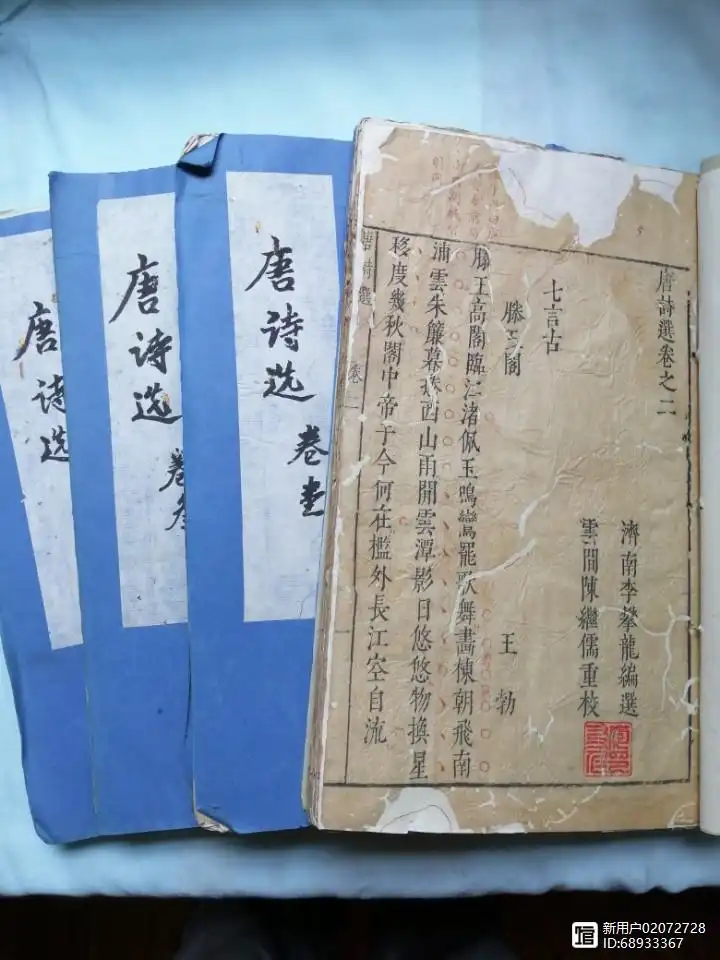 唐詩選卷之二
濟南李攀龍編選
雲間陳繼儒重校
七言古
滕王閣 王勃
滕王高閣臨江渚佩玉鳴鸞罷歌舞畫棟朝飛南
浦雲朱簾暮捲西山雨閒雲潭影日悠悠物換星
移度幾秋閣中帝子今何在檻外長江空自流
唐詩選 卷二
唐诗选
卷壹
唐诗选
卷叁
唐诗选
新用户02072728
ID:68933367